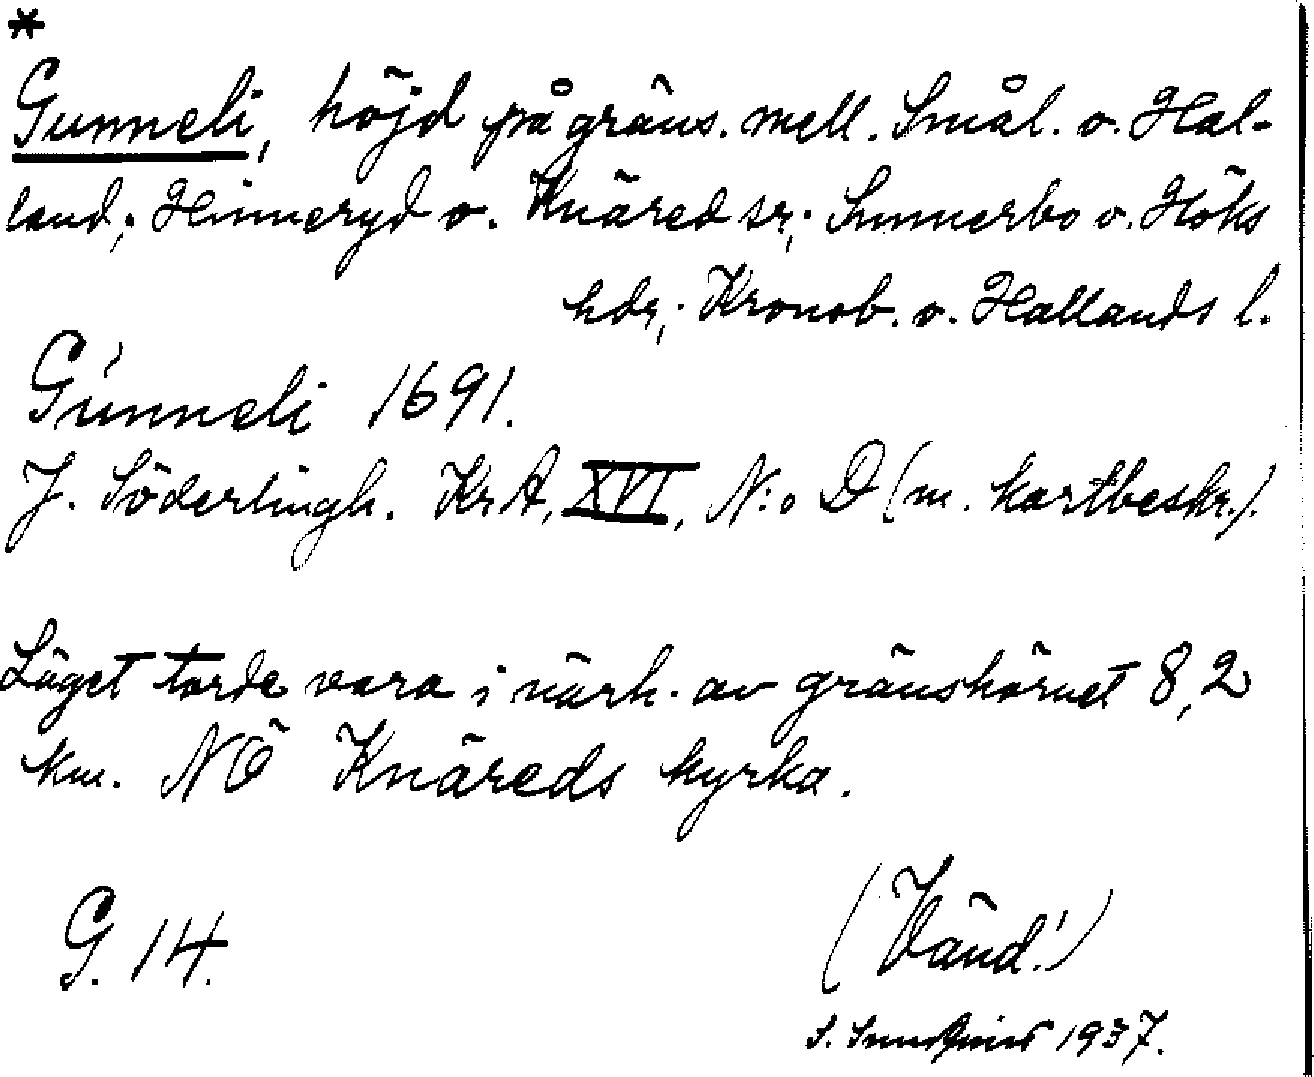 *
Gunneli, höjd på gräns. mell. Smål. o. Hal-
land; Hinneryd o. Knäred snr; Sunnerbo o. Höks
hdr; Kronob. o. Hallands l.
Gúnneli 1691.
J. Söderlingh. KrA, XVI, N:o D (m. kartbeskr.).
Läget torde vara i närh. av gränshörnet 8,2
km. NÖ Knäreds kyrka.
G. 14.
(Vänd!)
S. 1937.